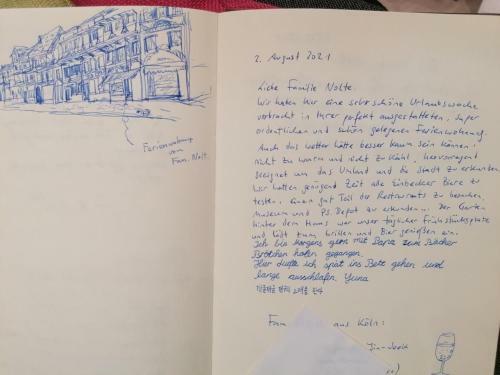 Ferienwohnung
von
Fam. Nolte.
2. August 2021
Liebe Familie Nolte.
Wir haben hier eine sehr schöne Urlaubswoche
verbracht in Ihrer perfekt ausgestatteten, super
ordentlichen und schön gelegenen Ferienwohnung.
Auch das Wetter hätte besser kaum sein können:
nicht zu warm und nicht zu kühl. Hervorragend
geeignet um das Umland und die Stadt zu erkunden.
Wir hatten genügend Zeit alle Einbecker Biere zu
testen. Einen gut Teil der Restaurants zu besuchen,
Museum und PS. Depot zu erkunden. Der Garten
hinter dem Haus war unser täglicher Frühstücksplatz
und lädt zum Grillen und Bier genießen ein.
Ich bin Morgens gern mit Papa zum Bäcker
Brötchen holen gegangen.
Hier durfte ich spät ins Bett gehen und
lange ausschlafen. Yuna
Fam aus Köln: